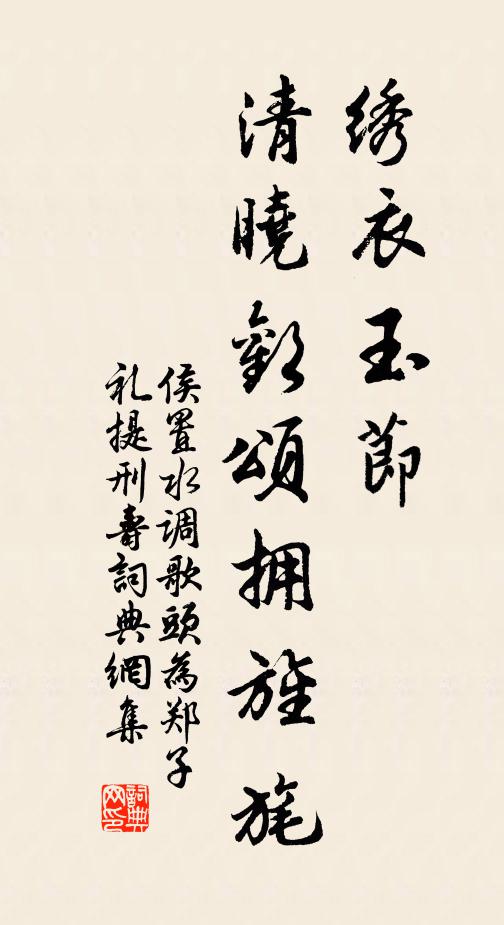 绣衣玉節
清曉歡頌拥旌旄
侯置水调歌頭為郑子
礼提刑壽詞典網集
詞典网